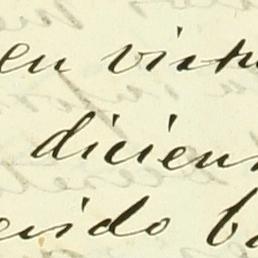 en virtu
dicien
endo b